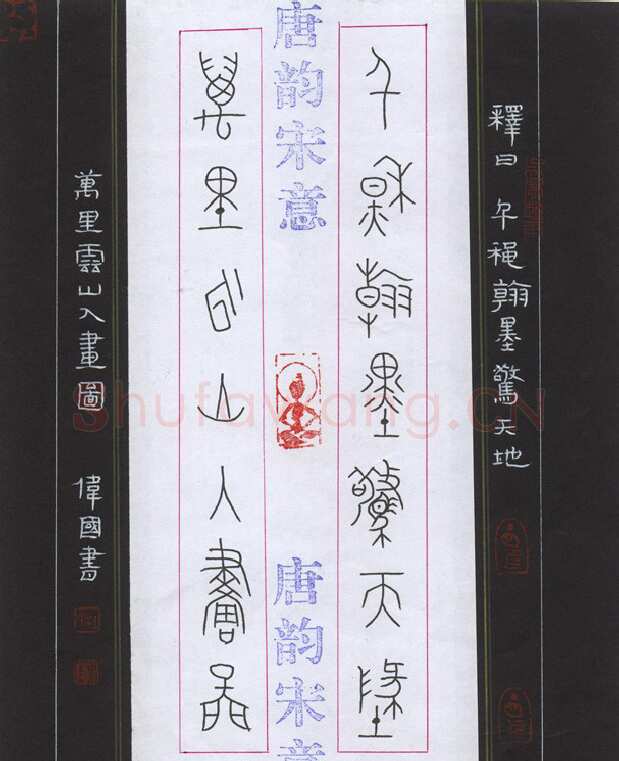 釋曰 千穐翰墨驚天地
千穐翰墨驚天地
唐韵宋意
唐韵宋意
萬里雲山入畫圖
萬里雲山入畫圖 偉國書
Shufawang.CN